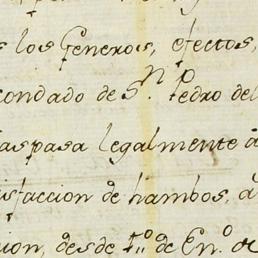 s los Generos, efectos,
condado de Sn. Pedro del
aspasa legalmente a
isfaccion de hambos, a
ion, desde 1o. de Eno. de